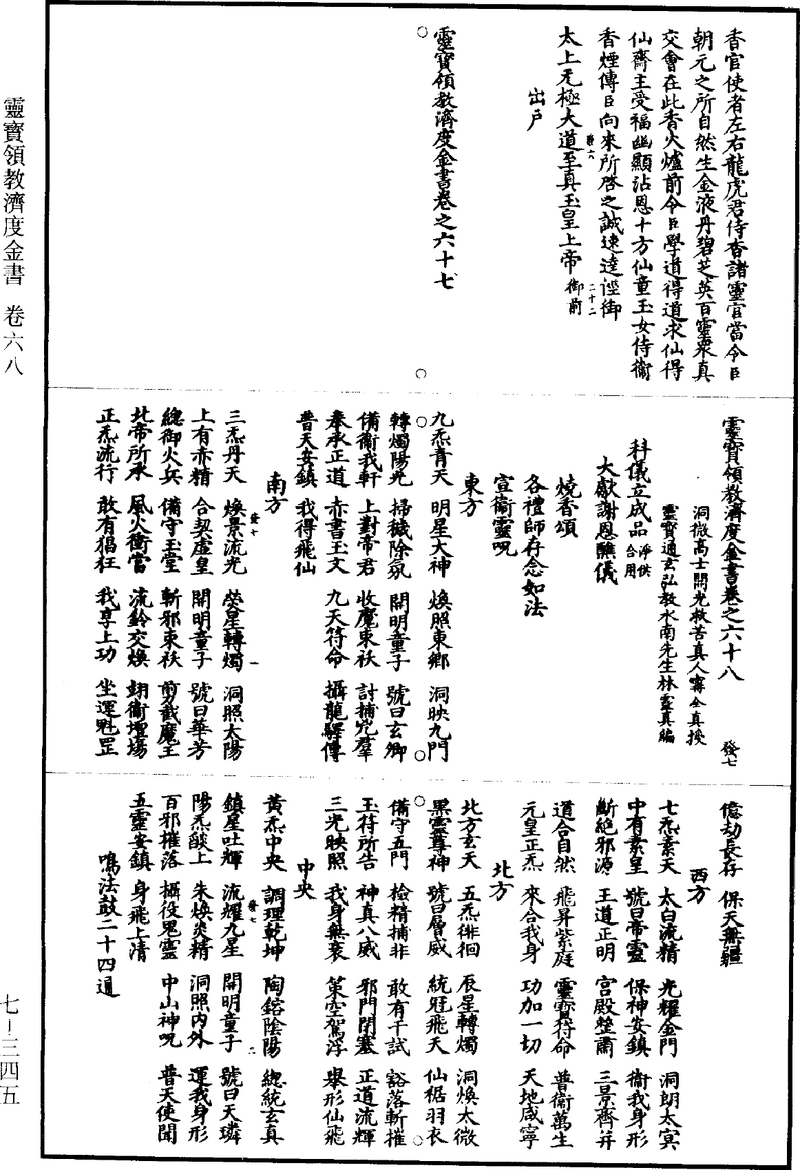 靈寶領教濟度金書 卷六八
七-三四五
香官使者左右龍虎君侍香諸靈官當令臣
朝元之所自然生金液丹碧芝英百靈衆真
交會在此香火爐前令臣學道得道求仙得
仙齋主受福幽顯沾恩十方仙童玉女侍衞
香煙傳臣向來所啓之誠速達徑御
太上无極大道至真玉皇上帝 御前
出戶
靈寶領教濟度金書卷之六十七
靈寶領教濟度金書卷之六十八 發七
洞微高士開光救苦真人甯全真授
靈寶通玄弘教水南先生林靈真編
科儀立成品 淨供合用
大獻謝恩醮儀
燒香頌
各禮師存念如法
宣衞靈呪
東方
九炁青天 明星大神 煥照東鄉 洞映九門
轉燭陽光 掃穢除氛 開明童子 號曰玄卿
備衞我軒 上對帝君 收魔束祅 討捕兇羣
奉承正道 赤書玉文 九天符命 攝龍驛傳
普天安鎮 我得飛仙
南方
三炁丹天 煥景流光 熒星轉燭 洞照太陽
上有赤精 合契虛皇 開明童子 號曰華芳
總御火兵 備守玉堂 斬邪束祅 剪截魔王
北帝所承 風火衝當 流鈴交煥 翊衞壇場
正炁流行 敢有猖狂 我享上功 坐運魁罡
億劫長存 保天無疆
西方
七炁素天 太白流精 光耀金門 洞朗太冥
中有素皇 號曰帝靈 保神安鎮 衞我身形
斷絕邪源 王道正明 宮殿整肅 三景齊并
道合自然 飛昇紫庭 靈寶符命 普衞萬生
元皇正炁 來合我身 功加一切 天地咸寧
北方
北方玄天 五炁徘徊 辰星轉燭 洞煥太微
黑靈尊神 號曰層威 統冠飛天 仙裾羽衣
備守五門 檢精捕非 敢有干試 豁落斬摧
玉符所告 神真八威 邪門閉塞 正道流輝
三光映照 我身無衰 策空駕浮 舉形仙飛
中央
黃炁中央 調理乾坤 陶鎔陰陽 總統玄真
鎮星吐輝 流耀九星 開明童子 號曰天璘
陽炁燄上 朱煥炎精 洞照內外 運我身形
百邪摧落 攝役鬼靈 中山神呪 普天使聞
五靈安鎮 身飛上清
鳴法鼓二十四通